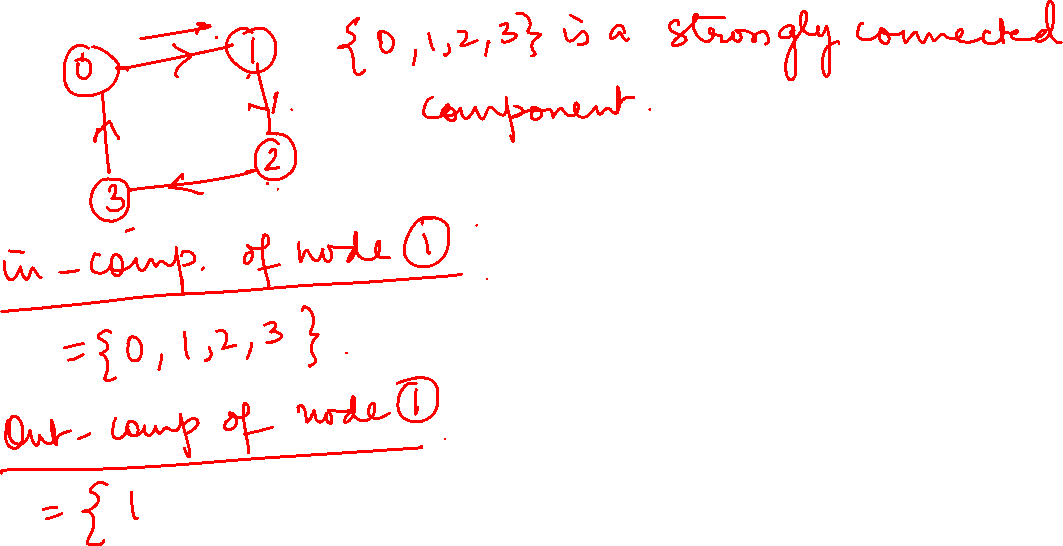 0 1 {0,1,2,3} is a strongly connected
component.
2
3
in-comp. of node 1
={0,1,2,3}.
Out-comp of node 1
={1